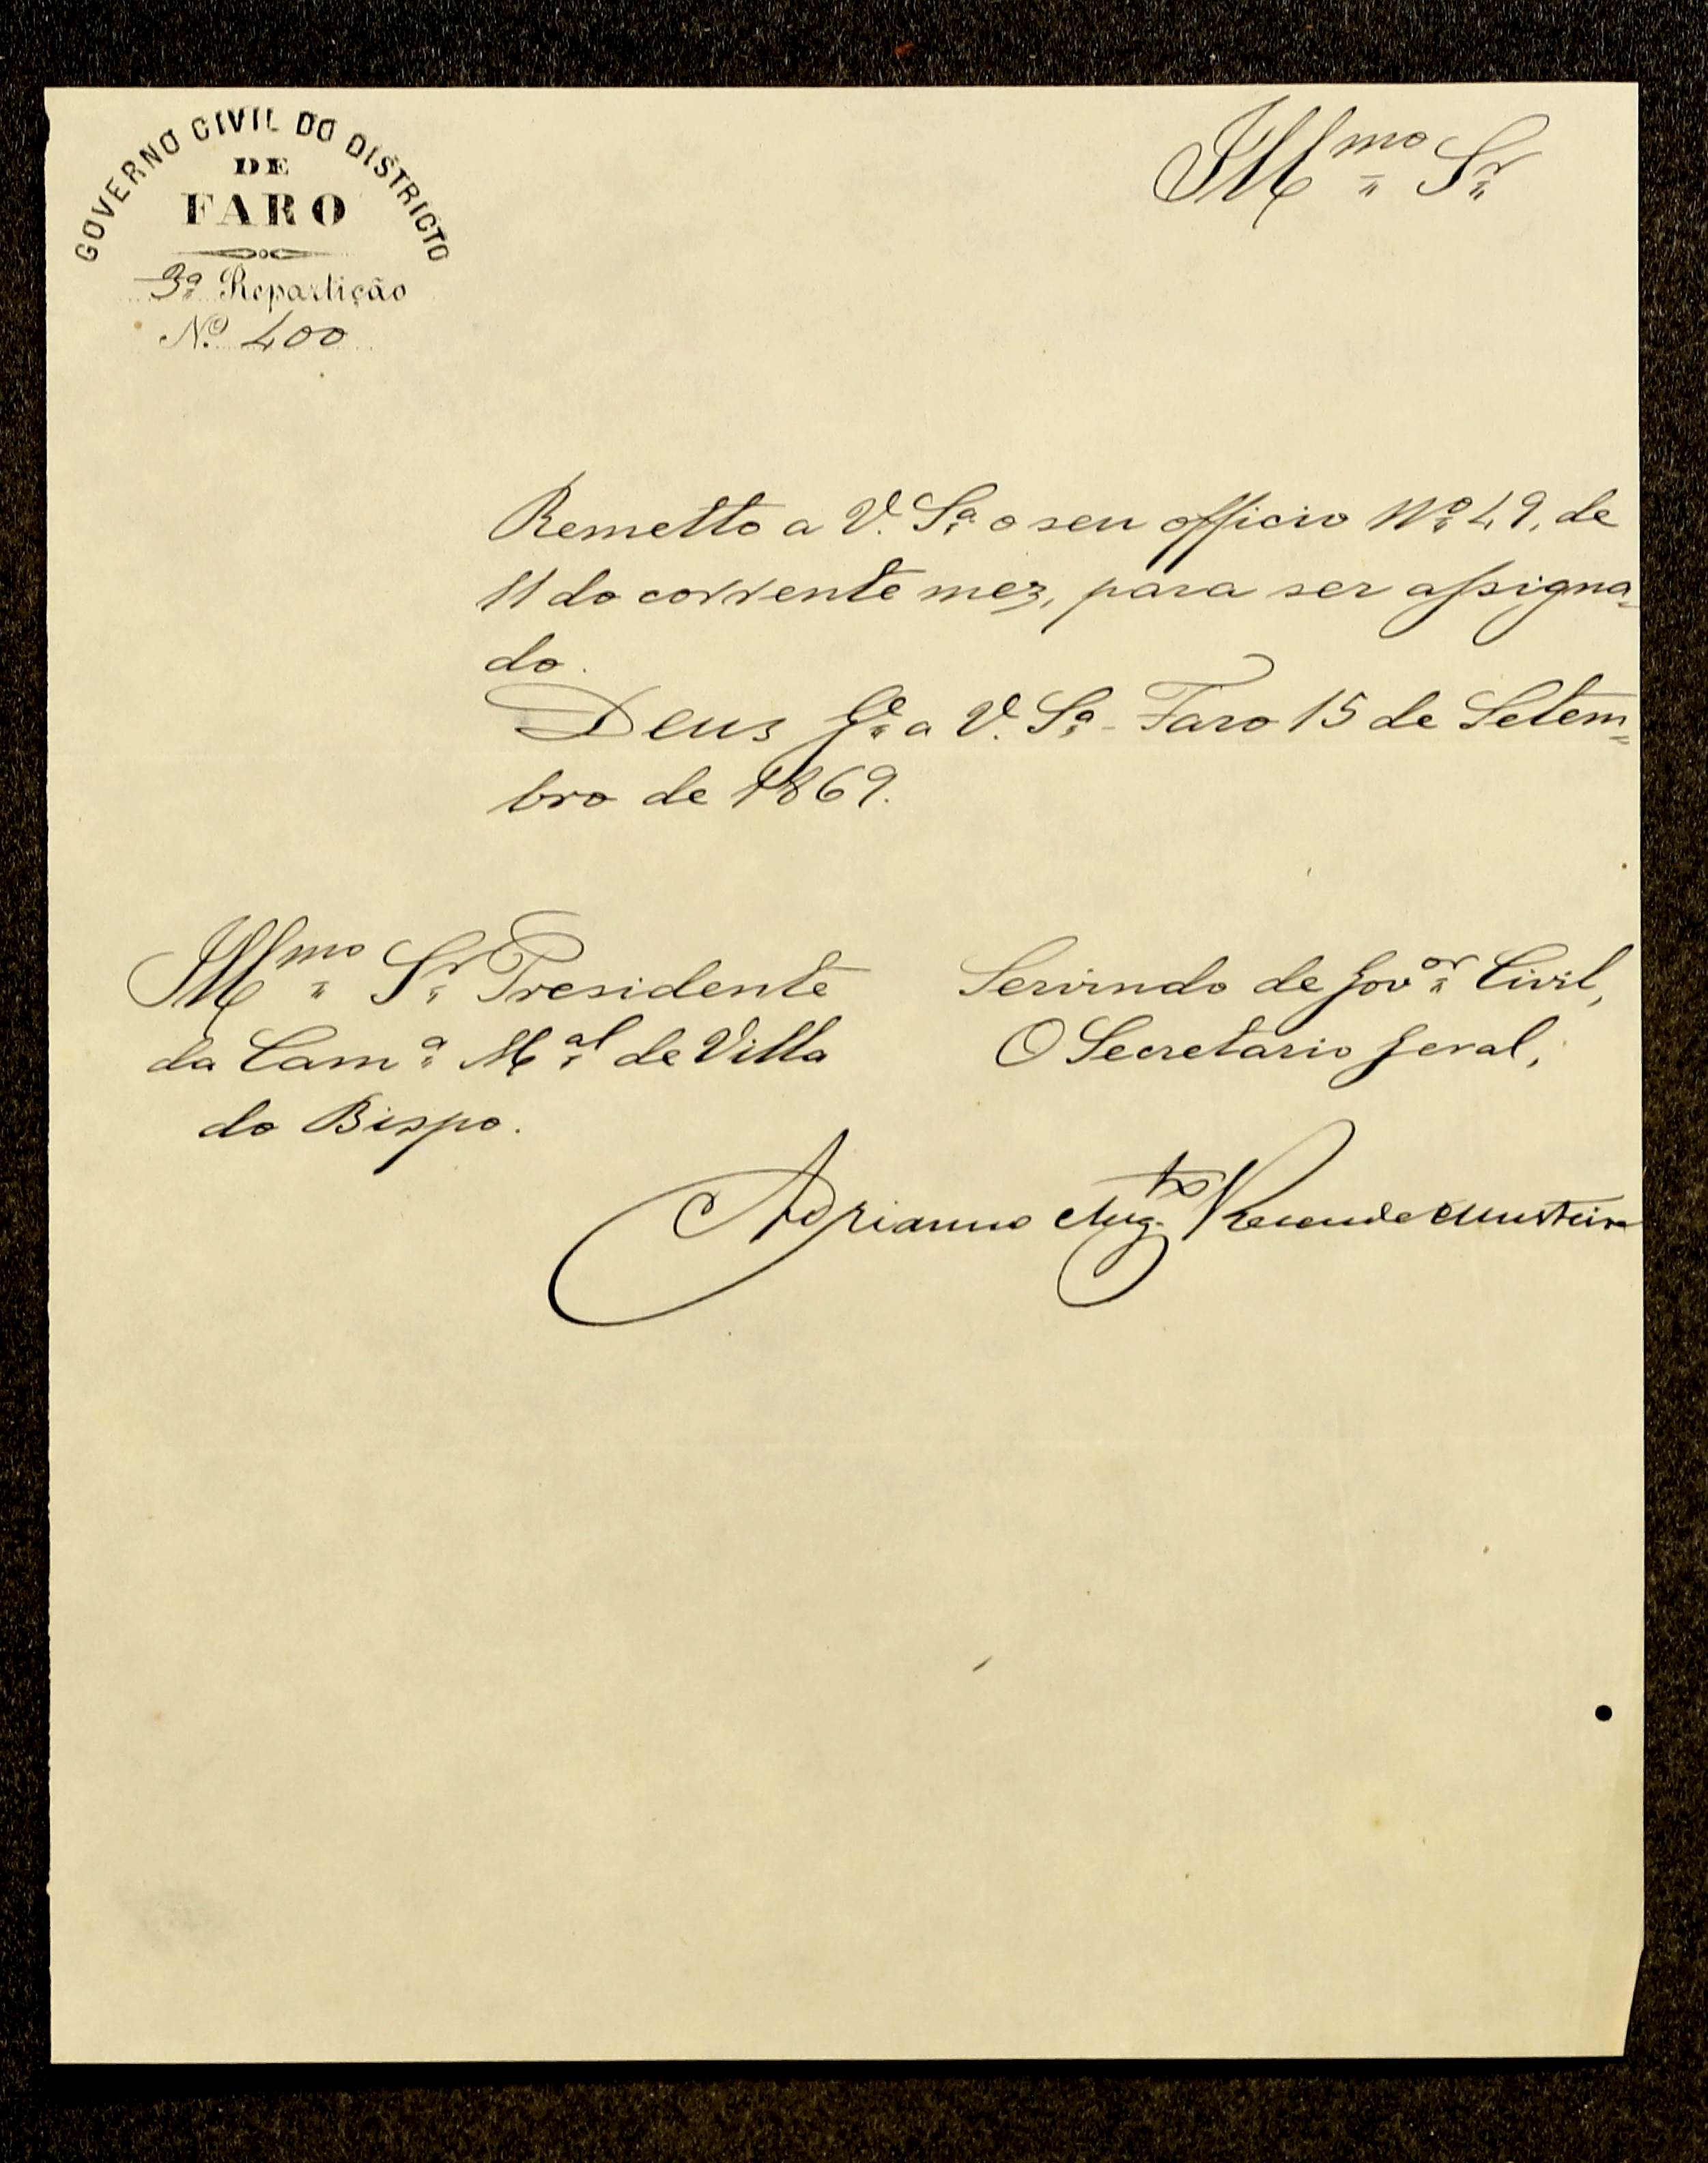 GOVERNO CIVIL DO DISTRICTO
DE
FARO
3ª Repartição
Nº 400
Illmo Sr
Remetto a V. Sª o seu officio Nº 49, de
11 do corrente mez, para ser assigna-
do.
Deus Ge a V. Sª - Faro 15 de Setem-
bro de 1869.
Illmo Sr Presidente
da Camª Mal de Villa
do Bispo.
Servindo de Govor Civil,
O Secretario Geral,
Adrianno Augto Resende Monteiro